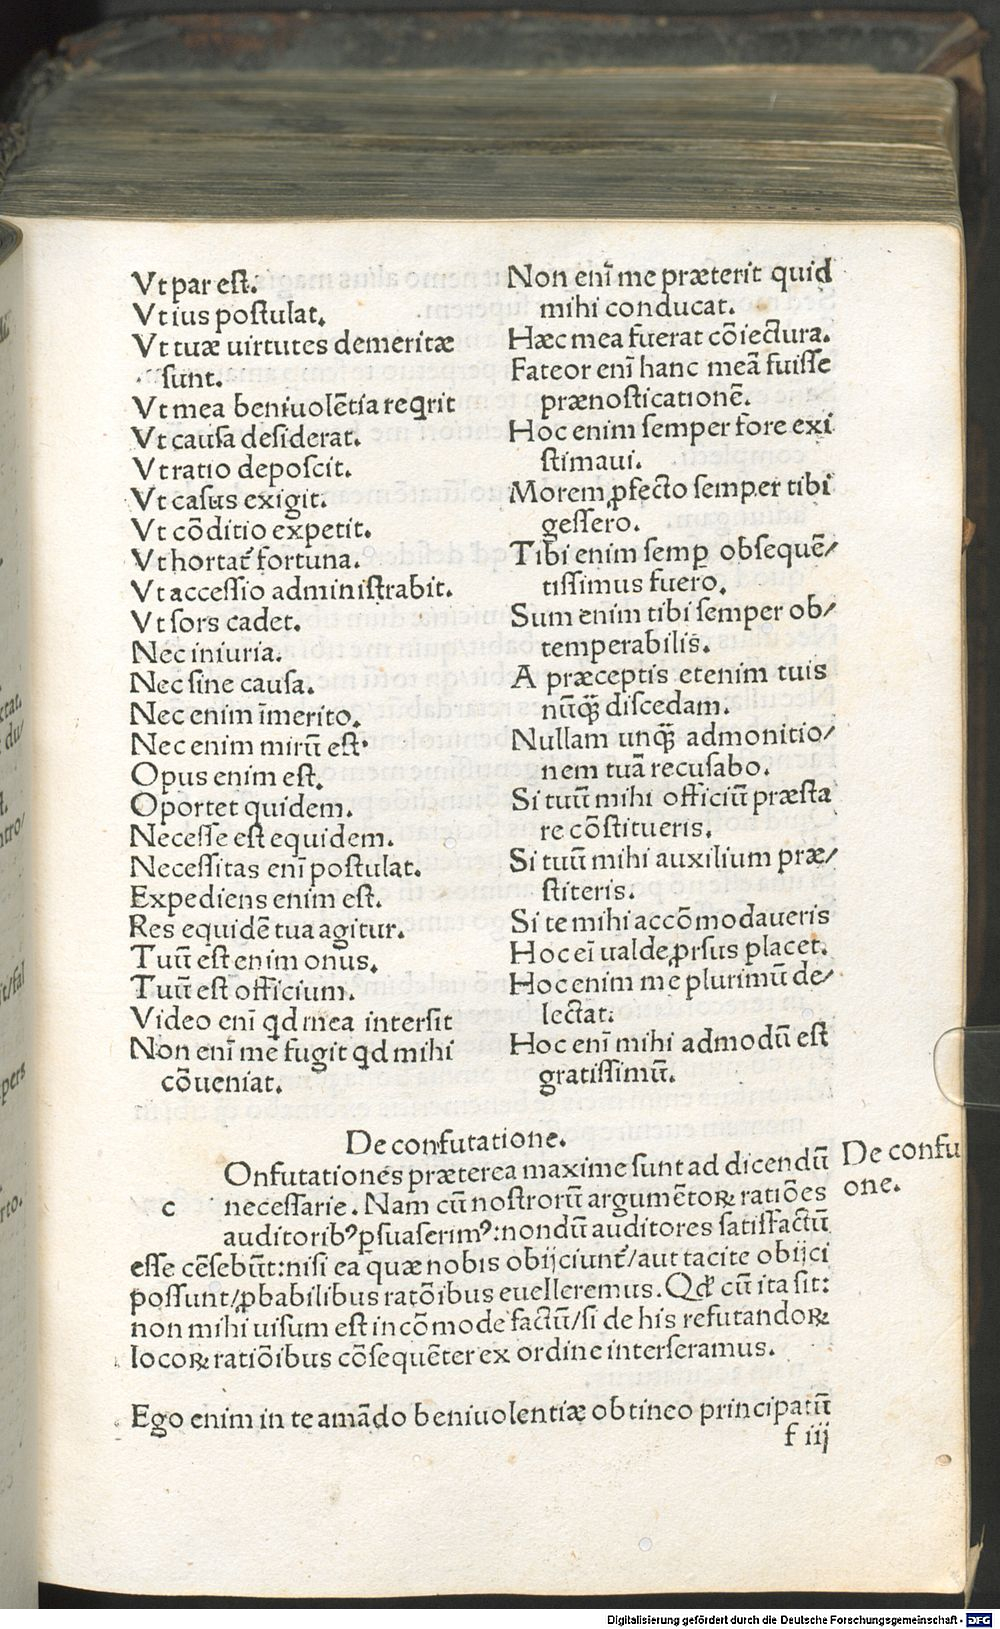 Vt par est.
Vt ius postulat.
Vt tuæ uirtutes demeritæ
sunt.
Vt mea beniuolẽtia reqrit
Vt causa desiderat.
Vt ratio deposcit.
Vt casus exigit.
Vt cõditio expetit.
Vt hortat᷑ fortuna.
Vt accessio administrabit.
Vt sors cadet.
Nec iniuria.
Nec sine causa.
Nec enim ĩmerito.
Nec enim mirũ est.
Opus enim est.
Oportet quidem.
Necesse est equidem.
Necessitas enĩ postulat.
Expediens enim est.
Res equidẽ tua agitur.
Tuũ est enim onus.
Tuũ est officium.
Video enĩ qd mea intersit
Non enĩ me fugit qd mihi
cõueniat.
Non enĩ me præterit quid
mihi conducat.
Hæc mea fuerat cõiectura.
Fateor enĩ hanc meã fuisse
prænosticationẽ.
Hoc enim semper fore exi
stimaui.
Morem ꝓfecto semper tibi
gessero.
Tibi enim semꝑ obsequẽ/
tissimus fuero.
Sum enim tibi semper ob/
temperabilis.
A præceptis etenim tuis
nũꝗ̃ discedam.
Nullam unꝗ̃ admonitio/
nem tuã recusabo.
Si tuũ mihi officiũ præsta
re cõstitueris.
Si tuũ mihi auxilium præ/
stiteris.
Si te mihi accõmodaueris
Hoc eĩ ualde ꝓrsus placet.
Hoc enim me plurimũ de/
lectat.
Hoc enĩ mihi admodũ est
gratissimũ.
De confutatione.
Onfutationes præterea maxime sunt ad dicendũ
c necessarie. Nam cũ nostrorũ argumẽtoꝝ ratiões
auditoribꝰ ꝑsuaserimꝰ: nondũ auditores satisfactũ
esse cẽsebũt: nisi ea quæ nobis obijciunt᷑/ aut tacite obijci
possunt/ ꝓbabilibus ratõibus euelleremus. Qđ cũ ita sit:
non mihi uisum est incõmode factũ/ si de his refutandoꝝ
locoꝝ ratiõibus cõsequẽter ex ordine interseramus.
De confu
one.
Ego enim in te amãdo beniuolentiæ obtineo principatũ
f iij
Digitalisierung gefördert durch die Deutsche Forschungsgemeinschaft - DFG